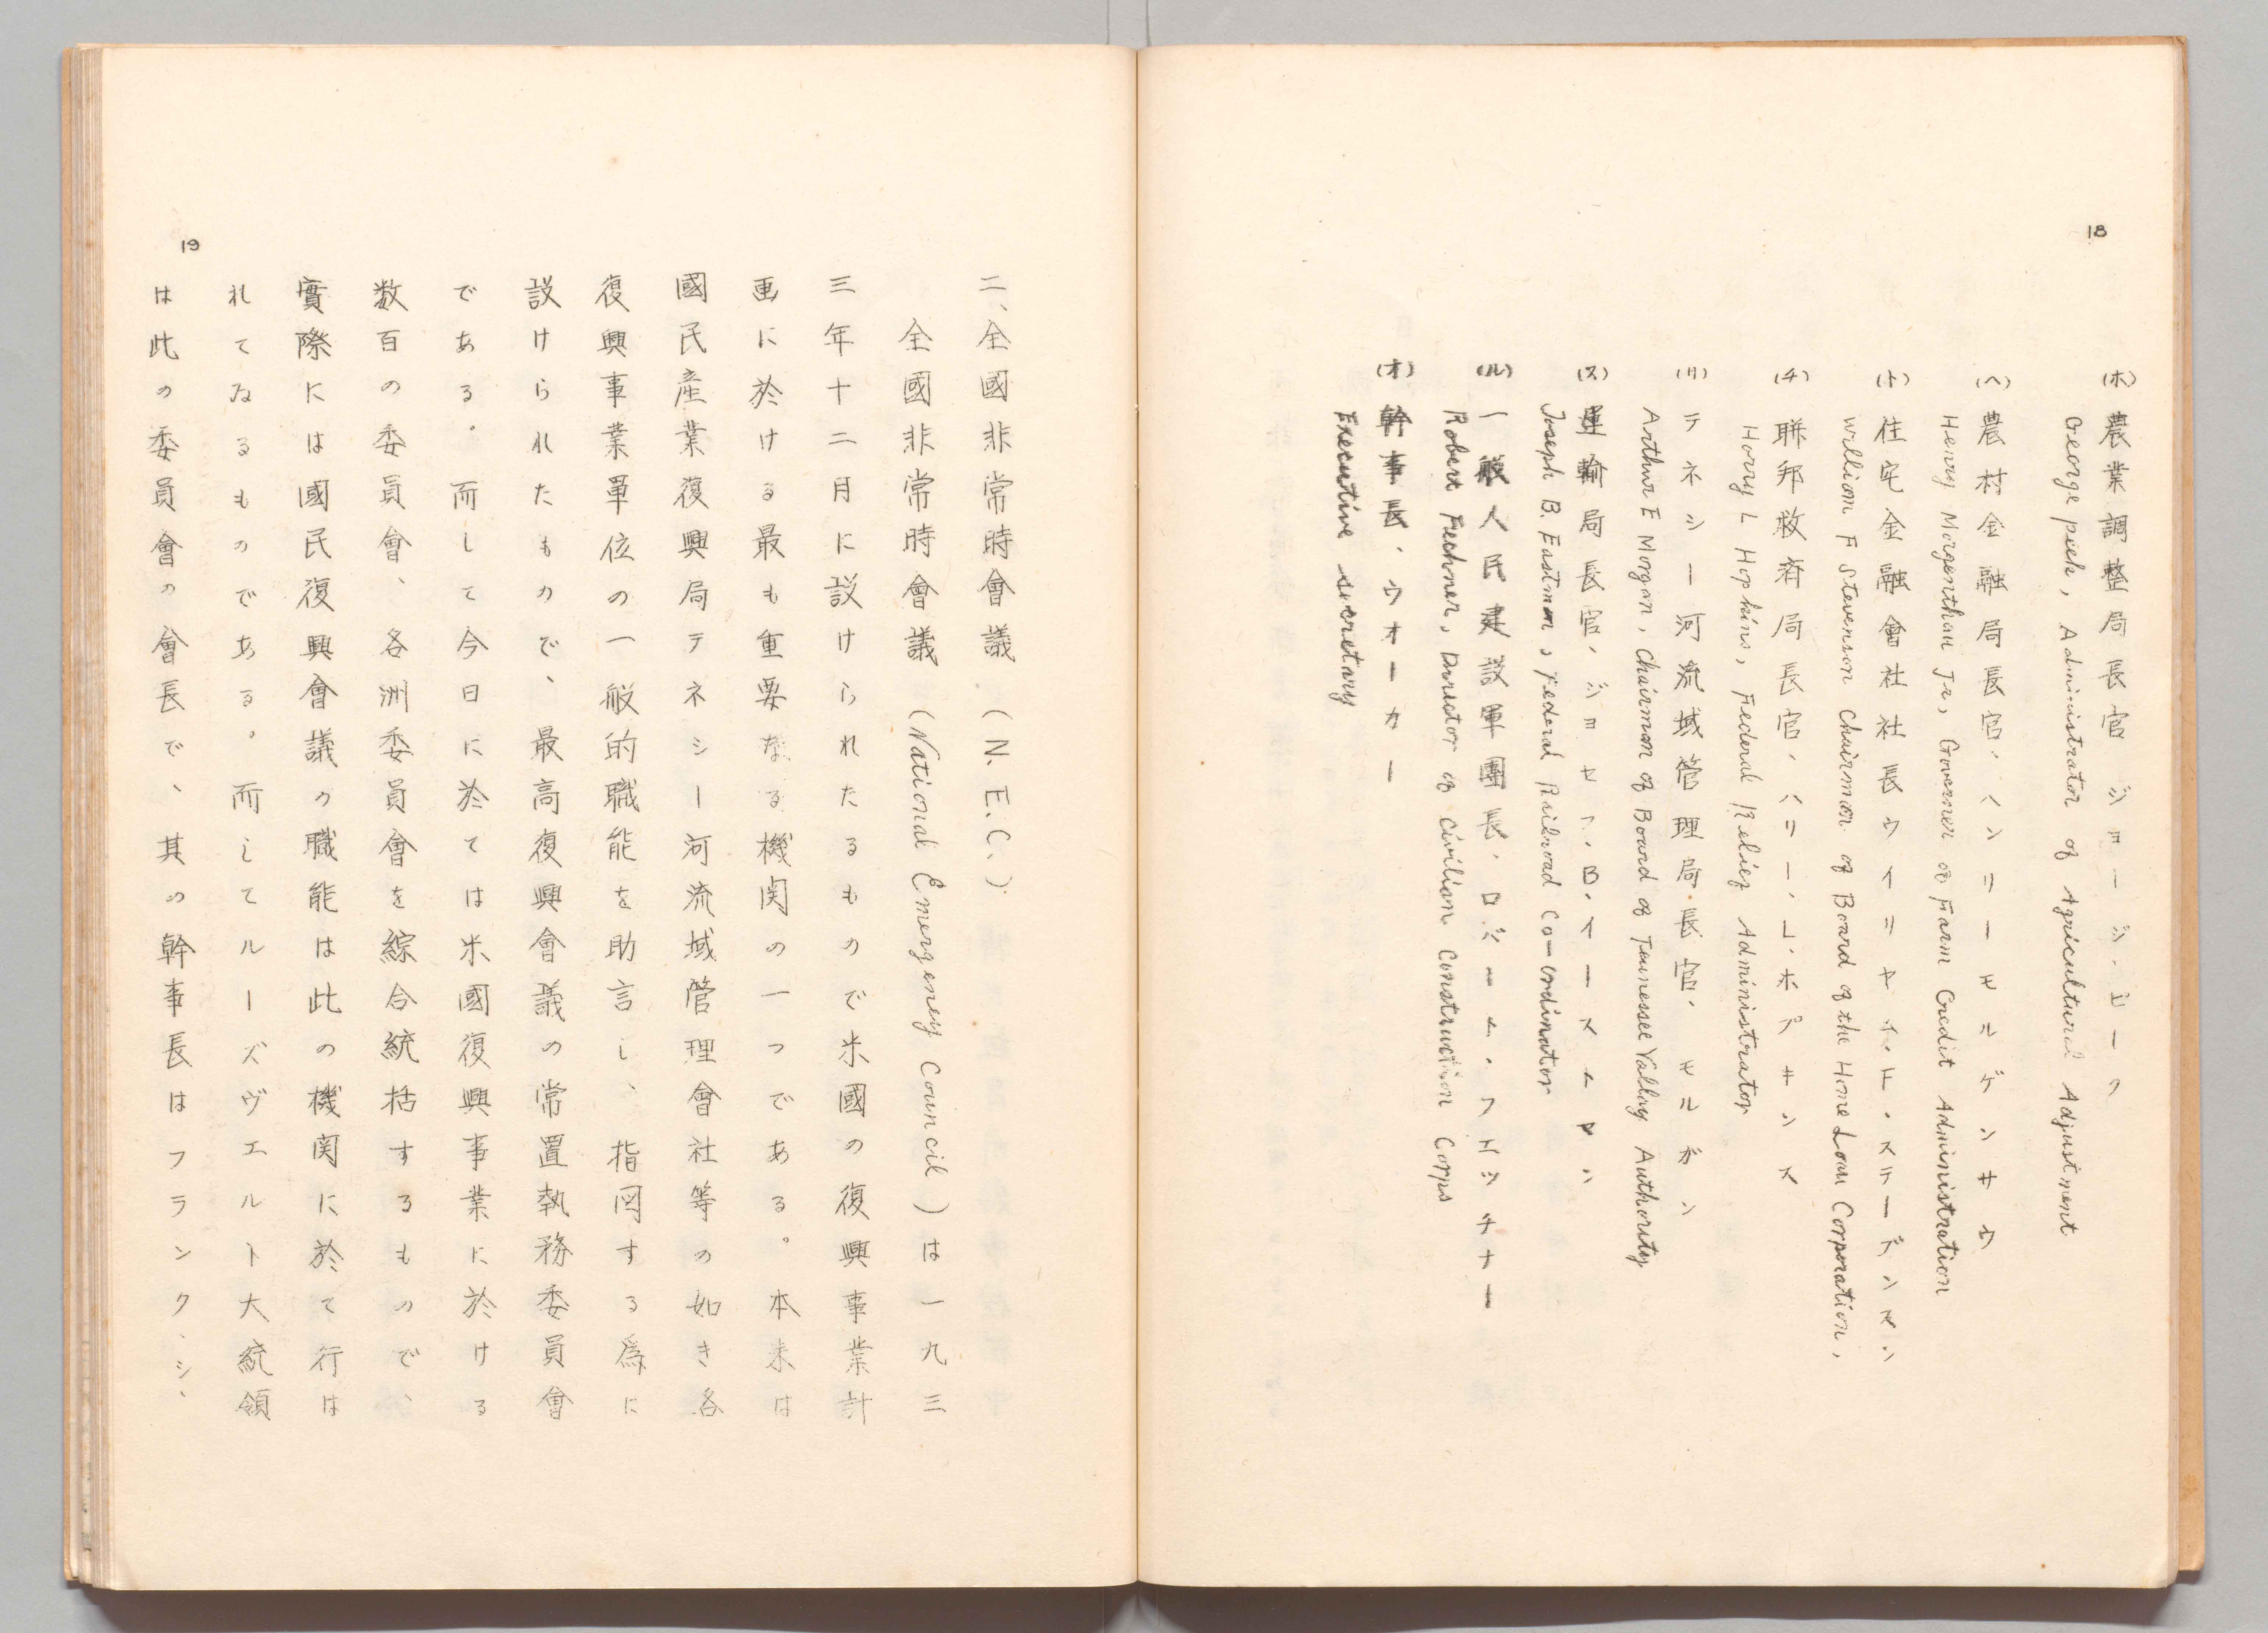 18
(ホ) 農業調整局長官 ジョージ・ピーク
George peek, Administrator of Agricultural Adjustment
(ヘ) 農村金融局長官、ヘンリーモルゲンサウ
Henry Morgenthau Jr, Governer of Farm Credit Administration
(ト) 住宅金融會社社長ウイリヤム・F・ステーブンスン
William F Stevenson Chairman of Board of the Home Loan Corporation,
(チ) 聯邦救済局長官、ハリー・L・ホプキンス
Harry L Hopkins, Federal Relief Administrator
(リ) テネシー河流域管理局長官、モルガン
Arthur E Morgan, Chairman of Board of Tennessee Valley Authority
(ヌ) 運輸局長官、ジョセフ・B・イーストマン
Joseph B. Eastman, Federal Railroad Co-ordinator
(ル) 一般人民建設軍團長、ロバート・フエシチナー
Robert Fechner, Director of Civilian Construction Corps
(オ) 幹事長、ウオーカー
Executive secretary
19
二、全國非常時會議 (N.E.C.)
全國非常時會議 (National Emergency Council) は一九三
三年十二月に設けられたるもので米國の復興事業計
画に於ける最も重要なる機関の一つである。本来は
國民産業復興局テネシー河流域管理會社等の如き各
復興事業單位の一般的職能を助言し、指図する爲に
設けられたもので、最高復興會議の常置執務委員會
である。而して今日に於ては米國復興事業に於ける
数百の委員會、各洲委員會を綜合統括するもので、
實際には國民復興會議の職能は此の機関に於て行は
れてゐるものである。而してルーズヴエルト大統領
は此の委員會の會長で、其の幹事長はフランク、シ、